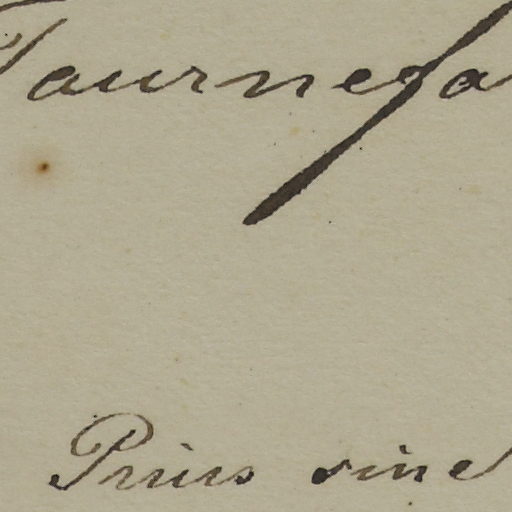 Tournefo
Prius sine